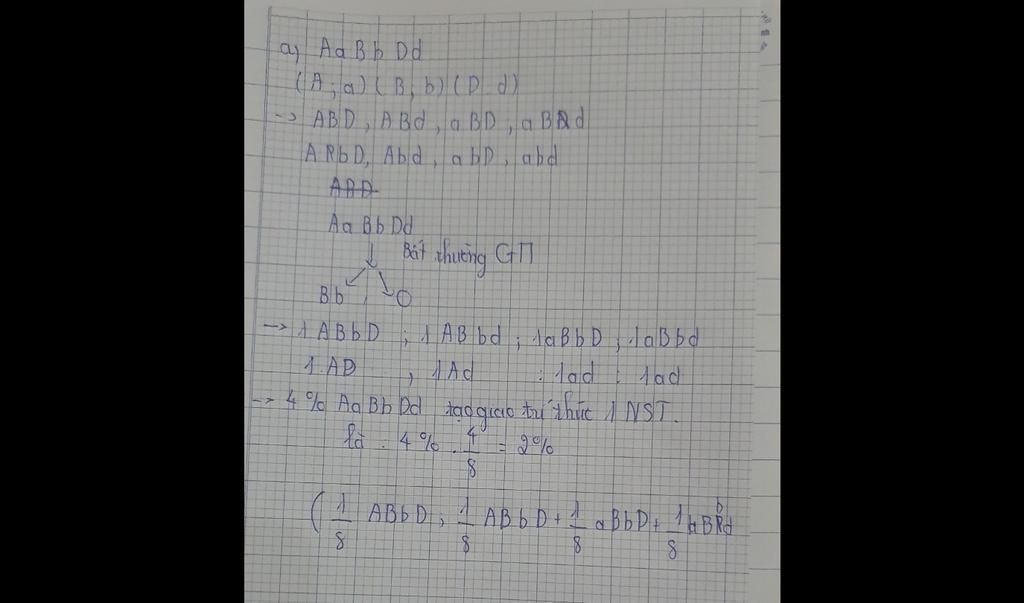 a, AaBbDd
(A ; a) (B, b) (D d)
-> ABD, ABd, aBD, aBd
AbD, Abd, abD, abd
ABD
AaBbDd
↓ Bất thường GП
Bb , O
-> 1ABbD ; 1ABbd ; 1aBbD ; 1aBbd
1AD , 1Ad : 1ad : 1ad
-> 4% AaBbDd tạo giao tử thức 1 NST.
là . 4% . 4/8 = 2%
(1/8 ABbD ; 1/8 ABbD + 1/8 aBbD + 1/8 aBbd